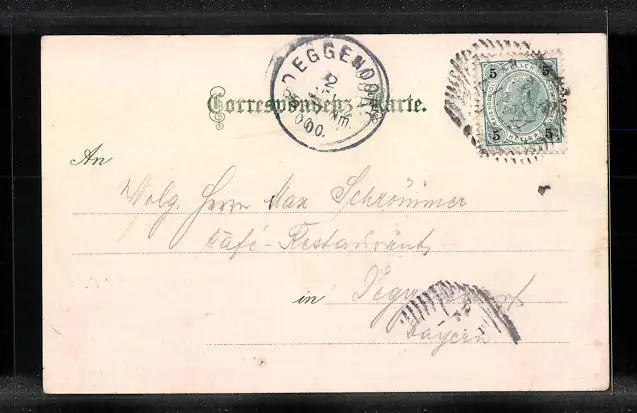 DEGGENDORF
2
Nm.
00.
Correspondenz-Karte.
5 5
5 5
An
Wolg. Herrn Max Schrömmer
Café-Restaurant
in Deggendorf
Bayern